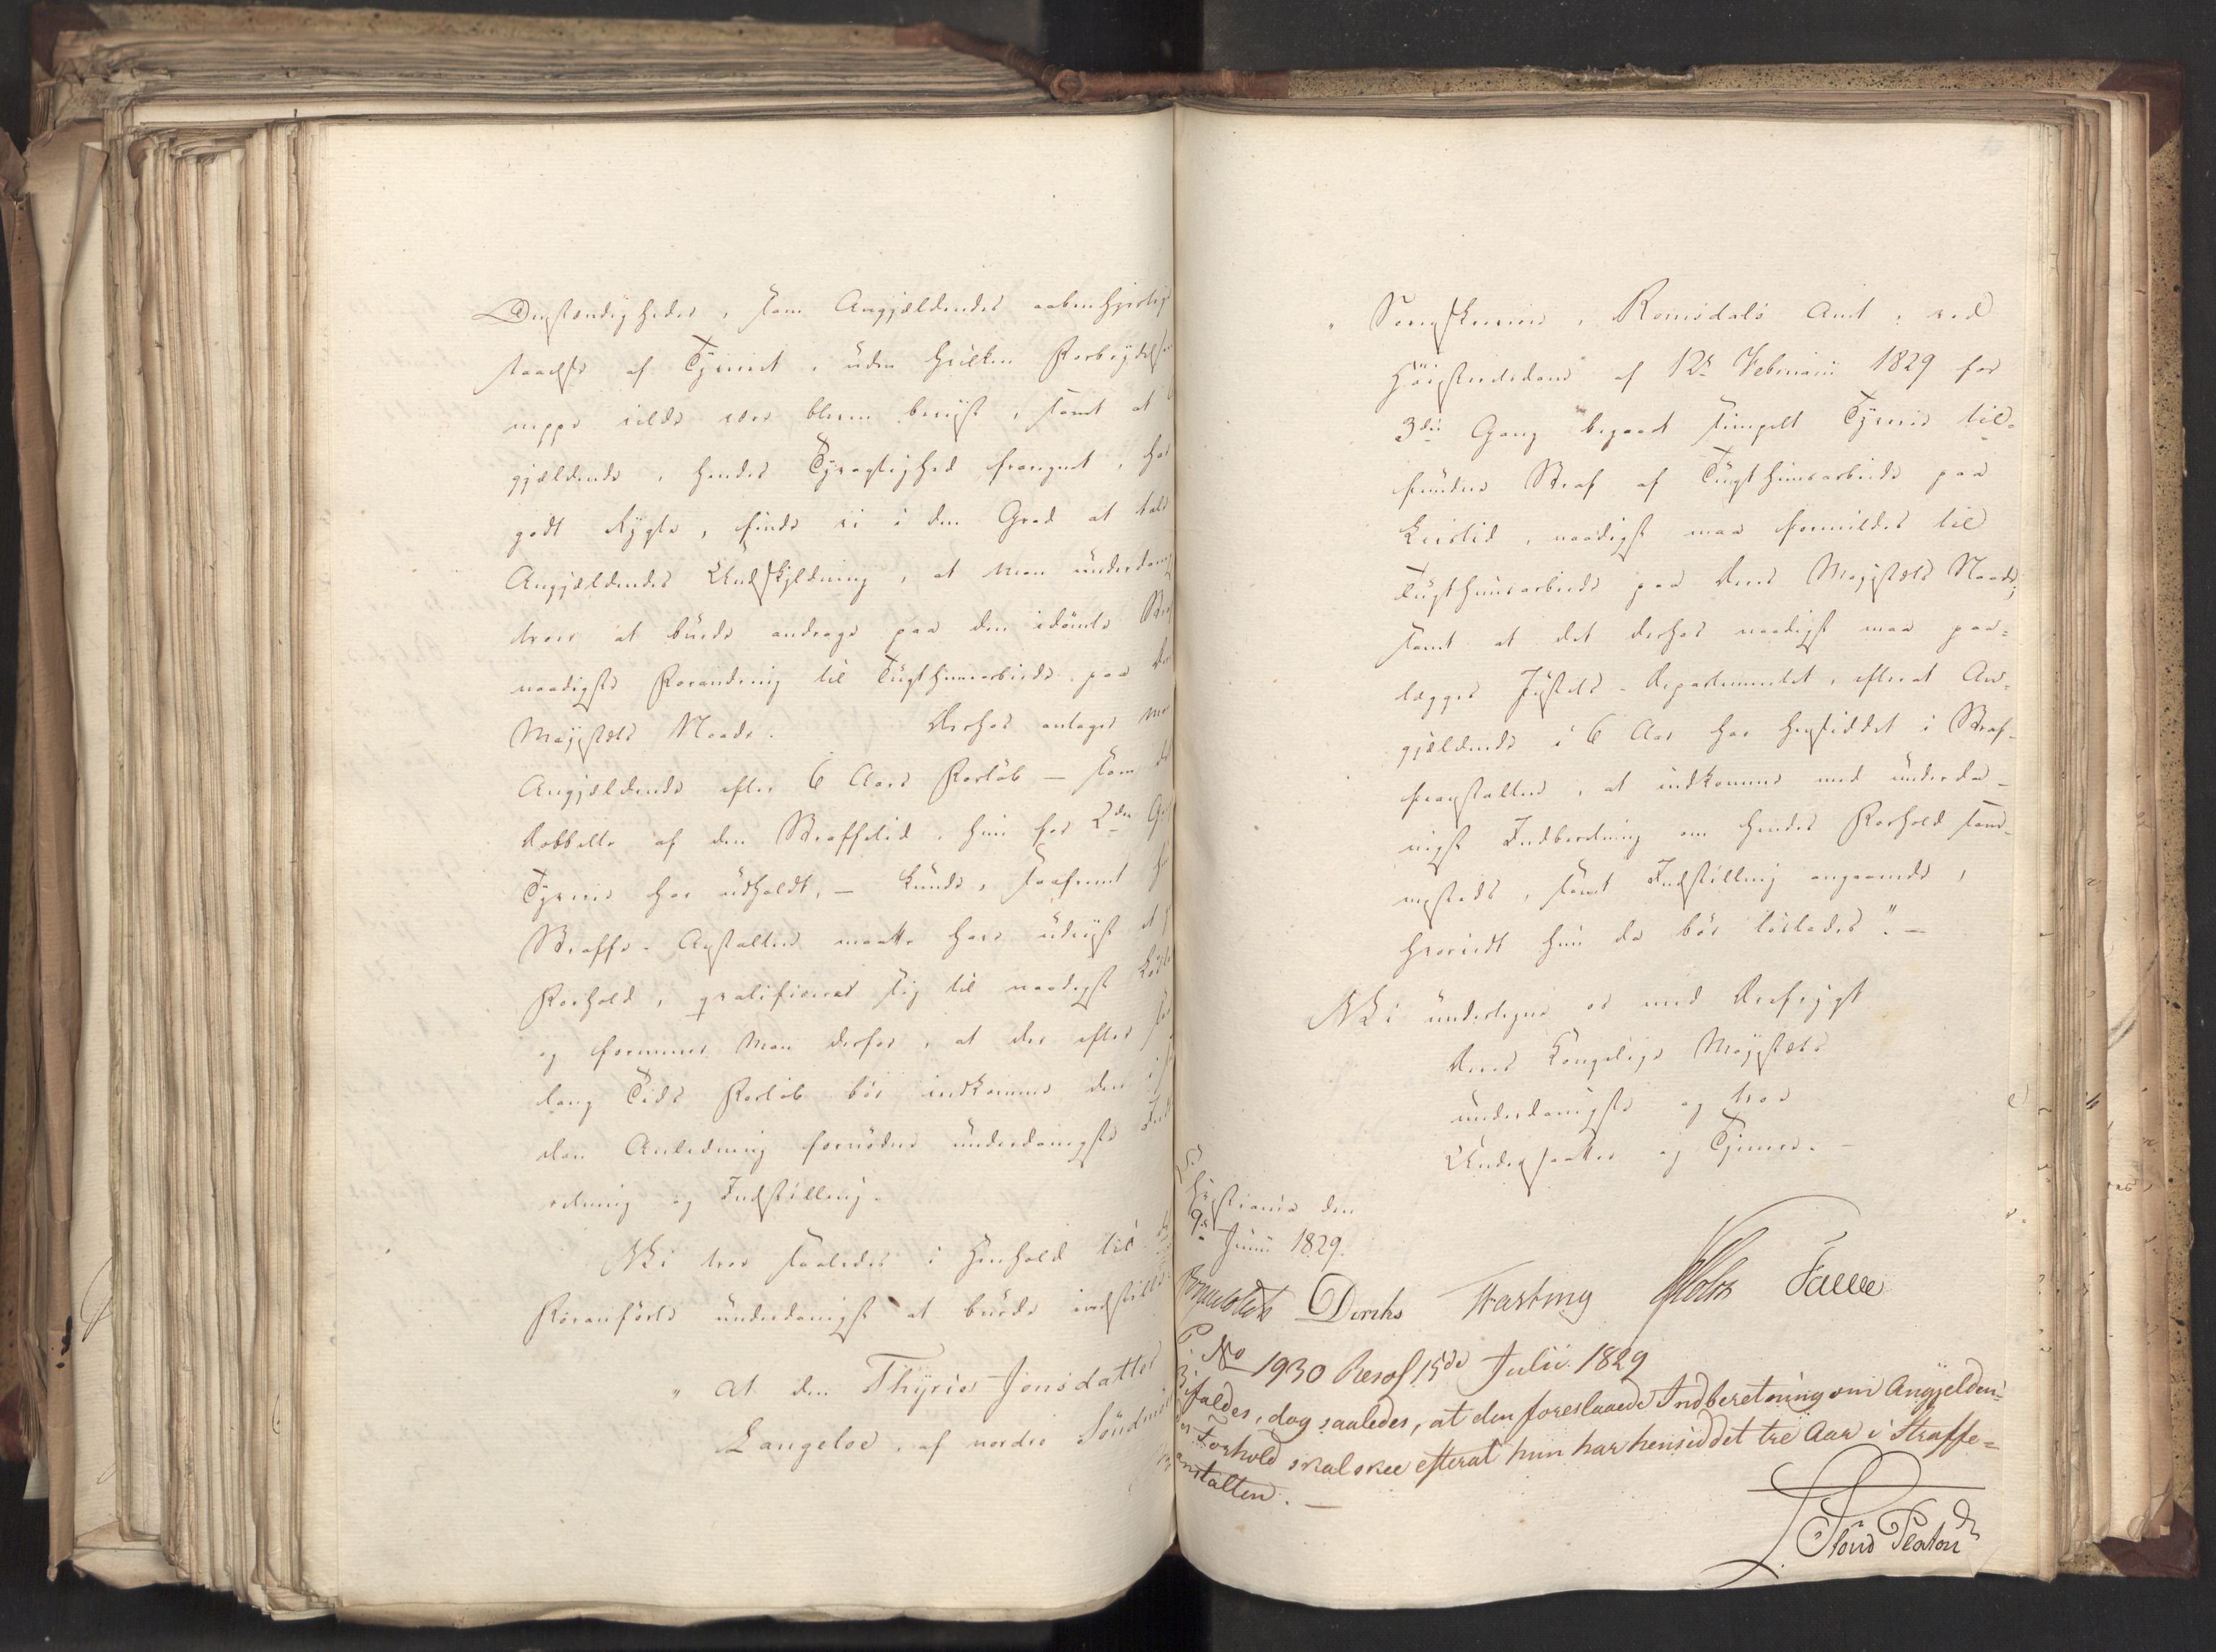 Omstændigheder, som Angjældendes aabenhjertige
staaelse af Tyveriet, uden hvilken Forbrydelsen
neppe vilde være bleven beviist, samt at
gjældende, hendes Tyvagtighed fraregnet, har
godt Rygte, finde vi i den Grad at tale
Angjældendes Undskyldning, at Man underdanigst
troer at burde andrage paa den idömte Straf
naadigste Forandring til Tugthuusarbeide paa De
Majestæts Naade. Derhos antages
Angjældende efter 6 Aars Forløb — som det
dobbelte af den Straffetid, hun for 2den Ga
Tyverie har udholdt, — kunde, saafremt hu
Straffe-Anstalten maatte have udviist et
Forhold, qvalificeret sig til naadigst Lösla
og formener Man derfor, at der efter
lang Tids Forløb bör indkomme den i
den Anledning fornödne underdanigste Ind
retning og Indstilling.
Vi troe saaledes i Henhold til
Foranförte underdanigst at burde indstille:
" at den Thyrie Jonsdatter
Langeloe, af nordre Söndmör
" Sorenskriverie, Romsdals Amt, ved
Höiesteretsdom af 12te Februarii 1829 for
3die Gang begaaet simpelt Tyverie til-
fundne Straf af Tugthuusarbeide paa
Livstid, naadigst maa formildes til
Tugthuusarbeide paa Deres Majestæts Naade;
samt at det derhos naadigst maa paa=
lægges Justits-Departementet, efterat An=
gjældende i 6 Aar har hensiddet i Straf-
feanstalten, at indkomme med underda-
nigst Indberetning om hendes Forhold sam-
mesteds, samt Indstilling angaaende,
hvorvidt hun da bör löslades". —
Vi undertegne os med Ærefrygt
Deres Kongelige Majestæts
underdanigste og troe
Undersaatter og Tjenere. —
Christiania den
9de Junii 1829.
Diriks Fasting Holst Falbe
P. No 1930 Resol. 15de Julii 1829
Bifaldes, dog saaledes, at den foreslaaede Indberetning om Angjelden=
des Forhold skal skee efterat hun har hensiddet tre Aar i Straffe=
anstalten. —
Stoud Platou